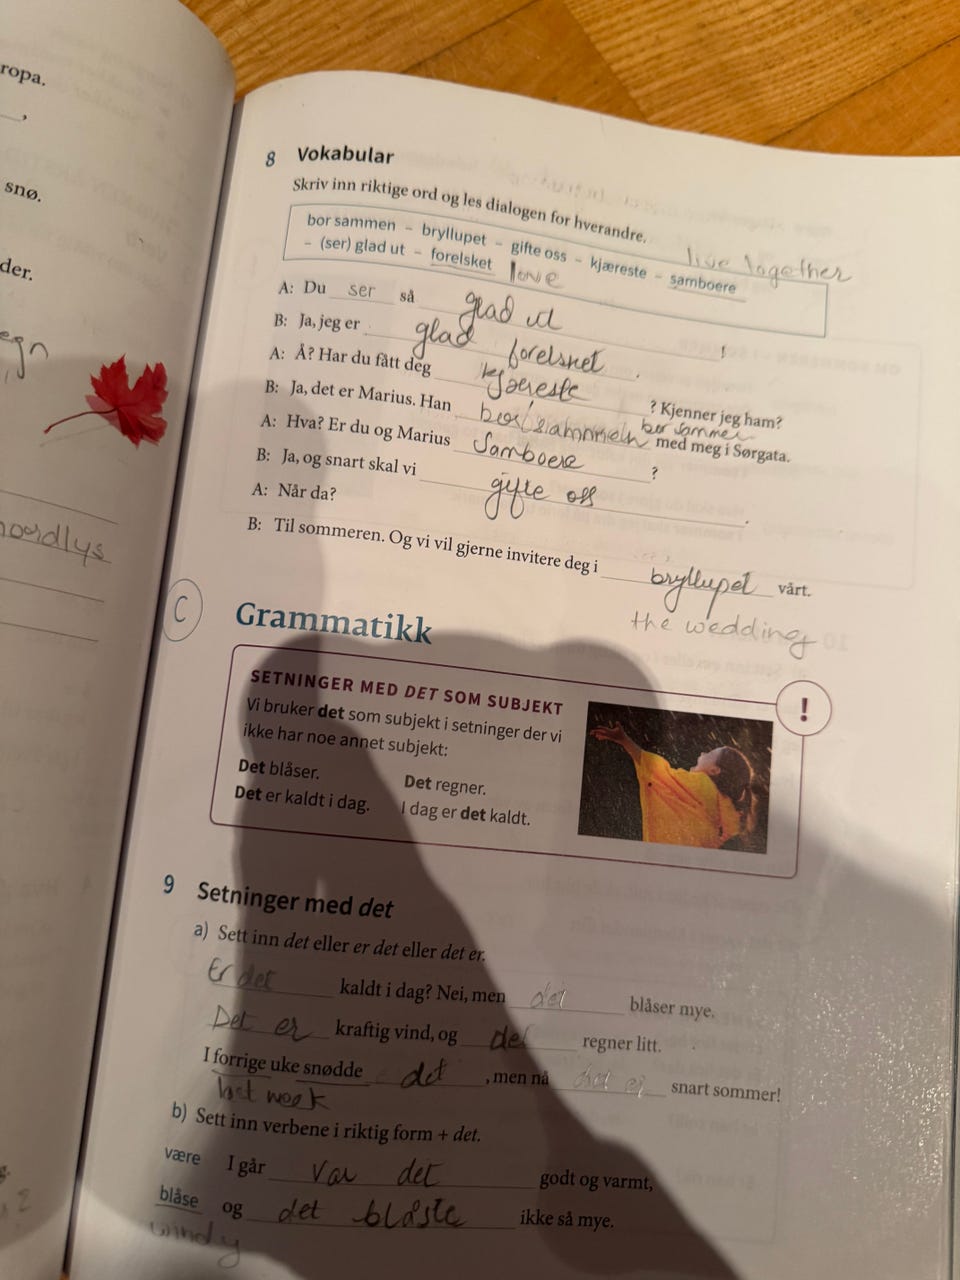 ropa.
snø.
der.
egn
noordlys
8 Vokabular
Skriv inn riktige ord og les dialogen for hverandre.
bor sammen – bryllupet – gifte oss – kjæreste – samboere
– (ser) glad ut – forelsket
love
live together
A: Du ser så glad ut !
B: Ja, jeg er glad forelsket .
A: Å? Har du fått deg kjæreste ? Kjenner jeg ham?
B: Ja, det er Marius. Han bor sammen med meg i Sørgata.
A: Hva? Er du og Marius Samboere ?
B: Ja, og snart skal vi gifte oss .
A: Når da?
B: Til sommeren. Og vi vil gjerne invitere deg i bryllupet vårt.
the wedding
C
Grammatikk
SETNINGER MED DET SOM SUBJEKT
!
Vi bruker det som subjekt i setninger der vi
ikke har noe annet subjekt:
Det blåser. Det regner.
Det er kaldt i dag. I dag er det kaldt.
9 Setninger med det
a) Sett inn det eller er det eller det er.
Er det kaldt i dag? Nei, men det blåser mye.
Det er kraftig vind, og det regner litt.
I forrige uke snødde det , men nå det er snart sommer!
last week
b) Sett inn verbene i riktig form + det.
være I går var det godt og varmt,
blåse og det blåste ikke så mye.
windy